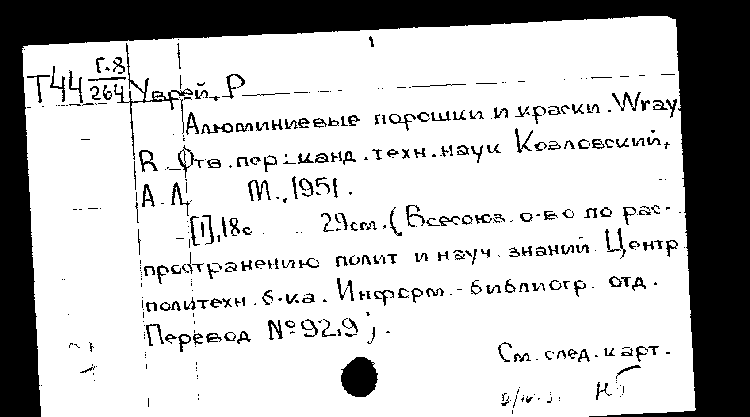 1
Т44 Г.8/264 Уврей, Р
Алюминиевые порошки и краски. Wray.
R. Отв. пер: канд. техн. наук Козловский,
А. Л. М., 1951.
[1], 18с 29см. (Всесоюз. о-во по рас-
пространению полит и науч. знаний. Центр
политехн. б-ка. Информ.-библиогр. отд.
Перевод № 92,9).
См. след. карт.
нб